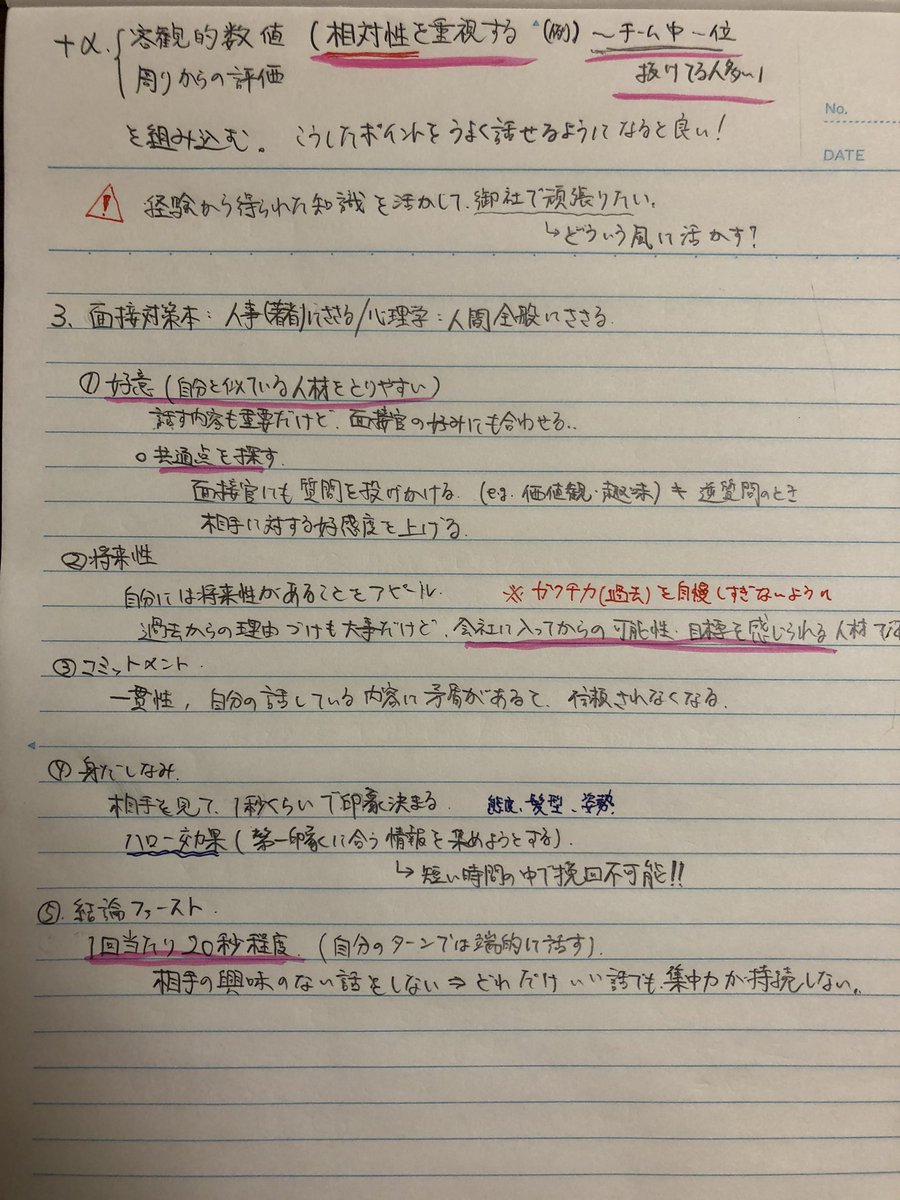 +α. 客観的数値 (相対性を重視する (例) 〜チーム中一位
周りからの評価 抜けてる人多い!
を組み込む。こうしたポイントをうまく話せるようになると良い!
No.
DATE
! 経験から得られた知識を活かして、御社で頑張りたい。
↳どういう風に活かす?
3. 面接対策本:人事(著者)にささる/心理学:人間全般にささる.
① 好意 (自分と似ている人材をとりやすい)
話す内容も重要だけど、面接官の好みにも合わせる..
○ 共通点を探す.
面接官にも質問を投げかける. (e.g. 価値観・趣味) 逆質問のとき
相手に対する好感度を上げる.
②将来性
自分には将来性があることをアピール. ※ ガクチカ(過去)を自慢しすぎないように
過去からの理由づけも大事だけど、会社に入ってからの可能性・目標を感じられる人材
③コミットメント.
一貫性, 自分の話している内容に矛盾があると、信頼されなくなる.
④ 身だしなみ.
相手を見て、1秒くらいで印象決まる. 態度、髪型、姿勢
ハロー効果 (第一印象に合う情報を集めようとする)
↳ 短い時間の中で挽回不可能!!
⑤. 結論ファースト.
1回当たり20秒程度. (自分のターンでは端的に話す)
相手の興味のない話をしない ⇒ どれだけいい話でも、集中力が持続しない。